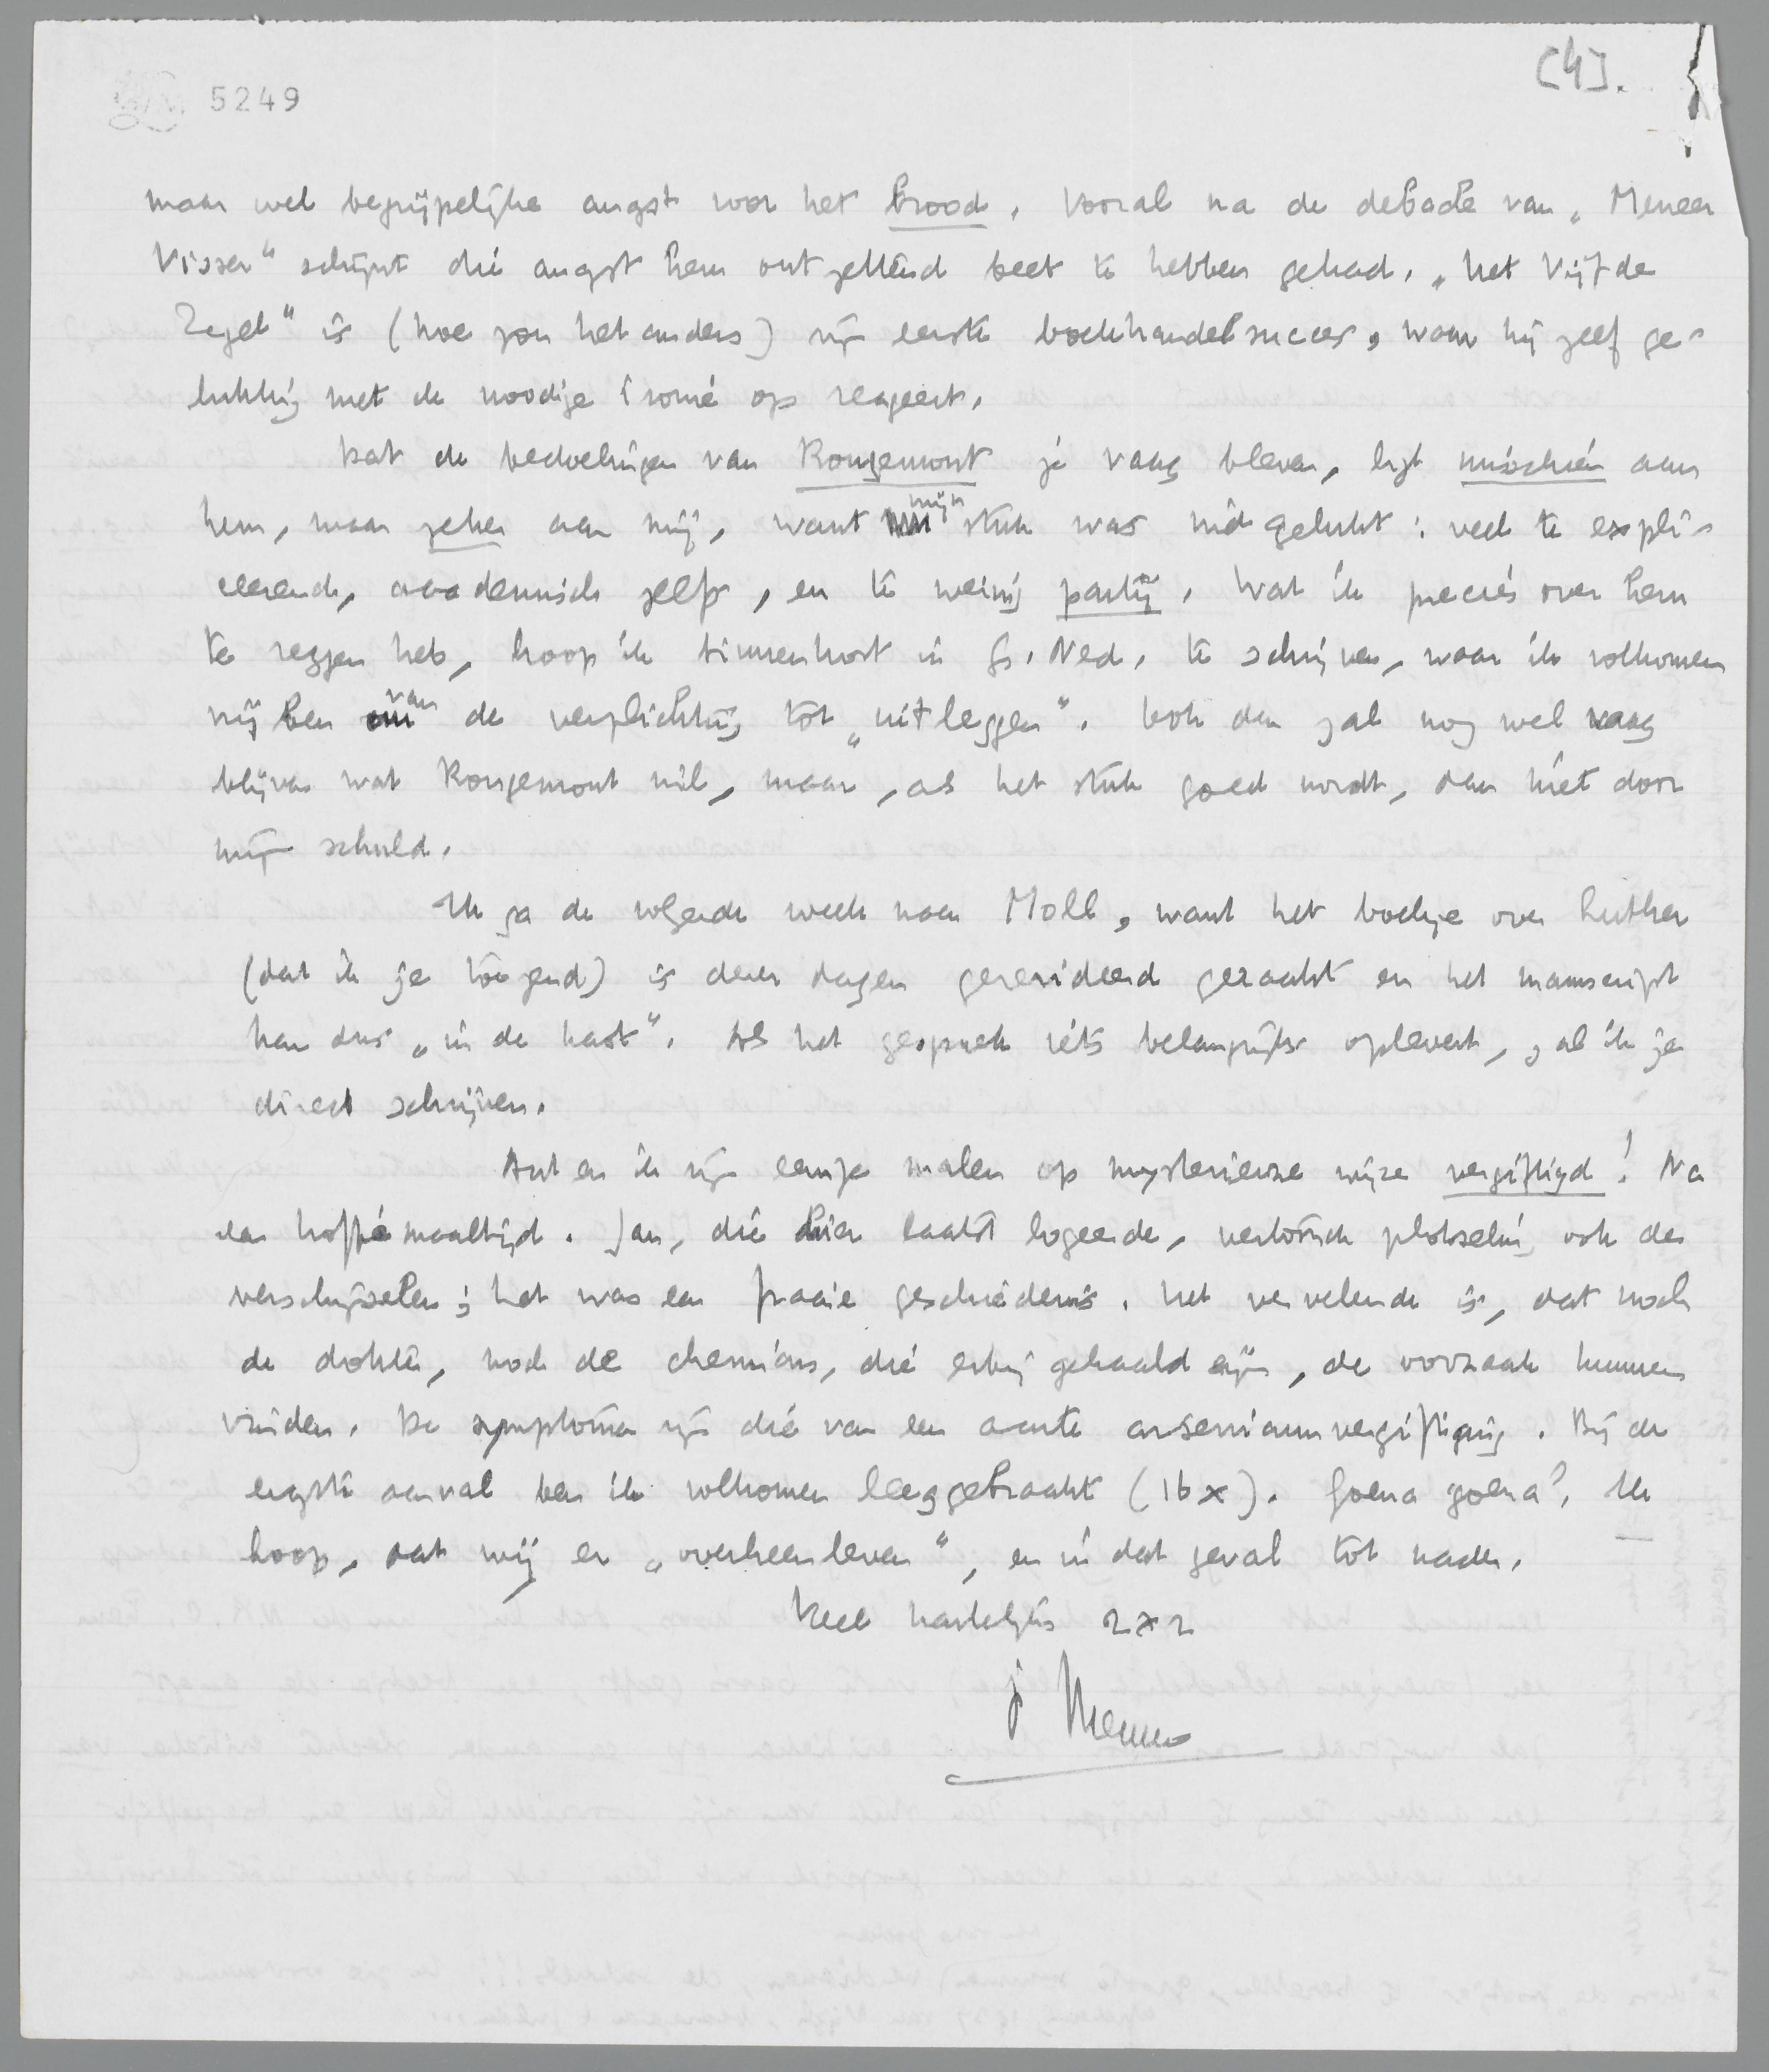 5249
[4].
maar wel begrijpelijke angst voor het brood. Vooral na de debacle van „Meneer
Visser" schijnt die angst hem ontzettend beet te hebben gehad. „Het Vijfde
Zegel" is (hoe zou het anders) zijn eerste boekhandelsucces, waar hij zelf ge-
lukkig met de noodige ironie op reageert.
Dat de bedoelingen van Rougemont je vaag bleven, ligt misschien aan
hem, maar zeker aan mij, want mijn stuk was niet gelukt: veel te expli-
ceerend, academisch zelfs, en te weinig partij. Wat ik precies over hem
te zeggen heb, hoop ik binnenkort in Gr. Ned. te schrijven, waar ik volkomen
vrij ben van de verplichting tot „uitleggen". Ook dan zal nog wel vaag
blijven wat Rougemont wil, maar, als het stuk goed wordt, dan niet door
mijn schuld.
Ik ga de volgende week naar Moll, want het boekje over Luther
(dat ik je toezend) is dezer dagen gerevideerd geraakt en het manuscript
kan dus „in de kast". Als het gesprek iets belangrijks oplevert, zal ik je
direct schrijven.
Ant en ik zijn eenige malen op mysterieuze wijze vergiftigd! Na
een koffiemaaltijd. Jan, die hier laatst logeerde, vertoonde plotseling ook de
verschijnselen; het was een fraaie geschiedenis. Het vervelende is, dat noch
de dokter, noch de chemicus, die erbij gehaald zijn, de oorzaak kunnen
vinden. De symptomen zijn die van een acute arsenicumvergiftiging. Bij de
ergste aanval ben ik volkomen leeggebraakt (16 x). Goena goena? Ik
hoop, dat wij er „overheenleven", en in dat geval tot nader.
Veel hartelijks 2 x 2
je Menno